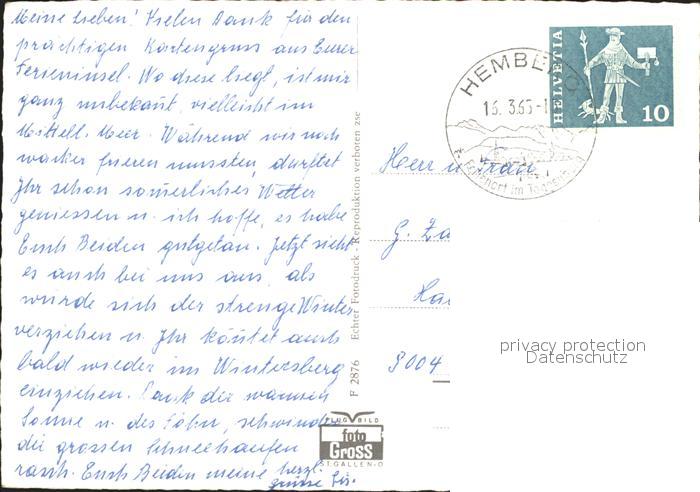 Meine Lieben! Vielen Dank für den
prächtigen Kartengruss aus Eurer
Ferieninsel. Wo diese liegt, ist mir
ganz unbekannt, vielleicht im
Mittell. Meer. Während wir noch
wacker frieren mussten, durftet
Ihr schon sommerliches Wetter
geniessen u. ich hoffe, es habe
Euch Beiden gutgetan. Jetzt sieht
es auch bei uns aus, als
würde sich der strenge Winter
verziehen u. Ihr könntet auch
bald wieder im Wintersberg
einziehen. Dank der warmen
Sonne u. des Föhn, schwinden
die grossen Schneehaufen
rasch. Euch Beiden meine herzl.
grüsse
F 2876 Echter Fotodruck - Reproduktion verboten
FLUGBILD
foto
GROSS
ST.GALLEN-O
HEMBERG
16.3.65-1
HELVETIA
10
Herr u. Frau
G. Za
Ha
8004
privacy protection
Datenschutz